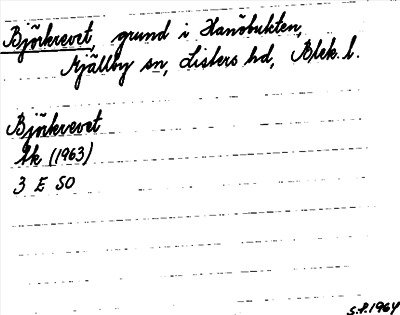 Björkrevet, grund i Hanöbukten,
Mjällby sn, Listers hd, Blek. l.
Björkrevet
Ek (1963)
3 E SO
S.F. 1964